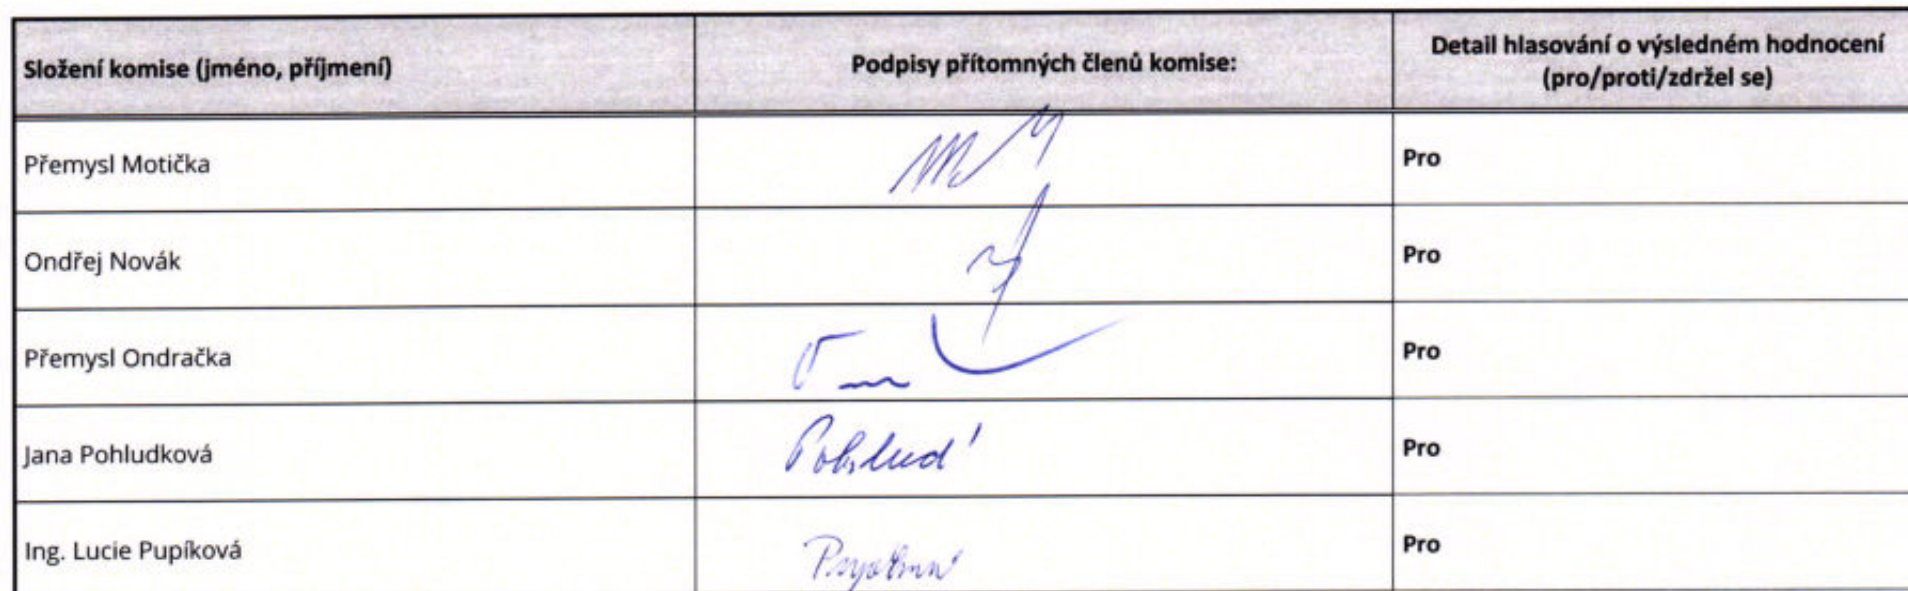 Složení komise (jméno, příjmení)
Podpisy přítomných členů komise:
Detail hlasování o výsledném hodnocení
(pro/proti/zdržel se)
Přemysl Motička
Pro
Ondřej Novák
Pro
Přemysl Ondračka
Pro
Jana Pohludková
Pro
Ing. Lucie Pupíková
Pro